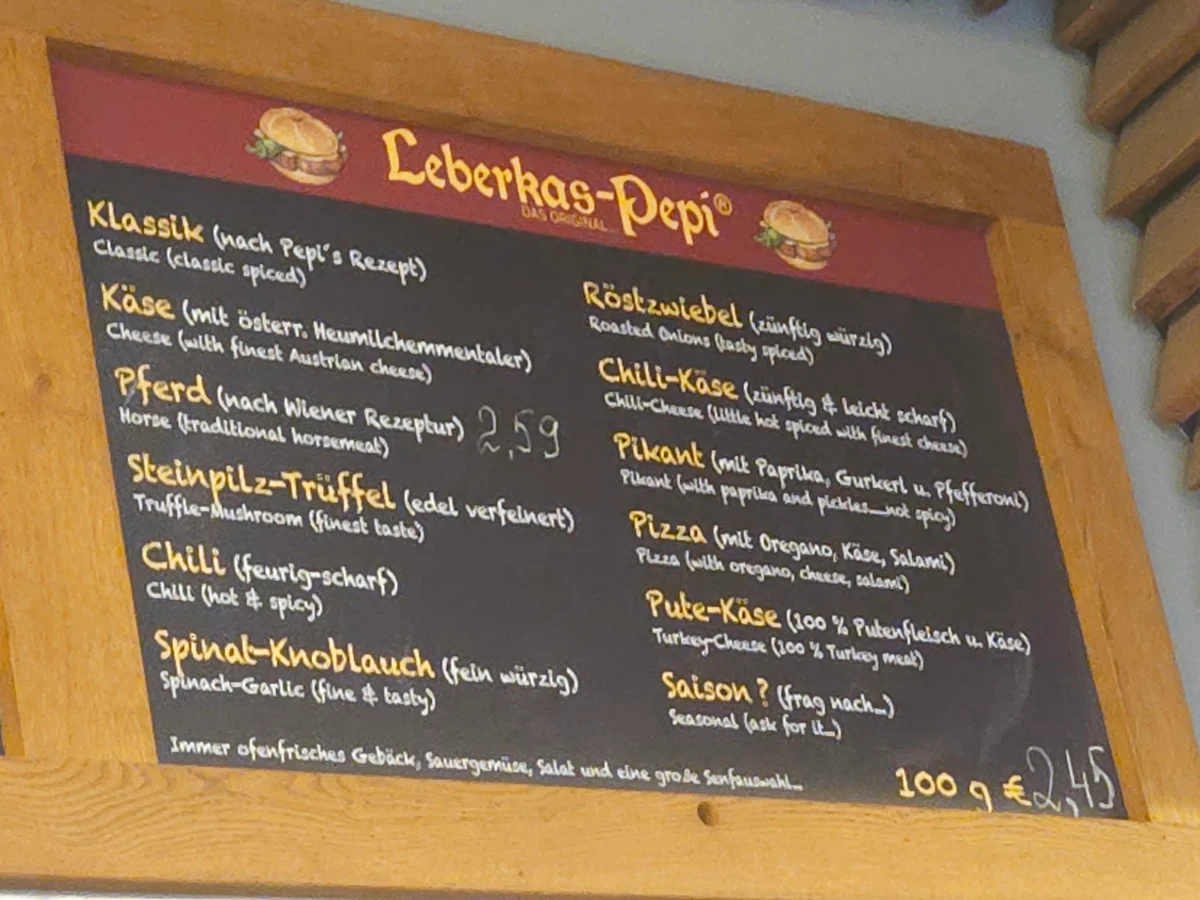 Leberkas-Pepi®
DAS ORIGINAL...
Klassik (nach Pepi´s Rezept)
Classic (classic spiced)
Käse (mit österr. Heumilchemmentaler)
Cheese (with finest Austrian cheese)
Pferd (nach Wiener Rezeptur) 2,59
Horse (traditional horsemeat)
Steinpilz-Trüffel (edel verfeinert)
Truffle-Mushroom (finest taste)
Chili (feurig-scharf)
Chili (hot & spicy)
Spinat-Knoblauch (fein würzig)
Spinach-Garlic (fine & tasty)
Röstzwiebel (zünftig würzig)
Roasted Onions (tasty spiced)
Chili-Käse (zünftig & leicht scharf)
Chili-Cheese (little hot spiced with finest cheese)
Pikant (mit Paprika, Gurkerl u. Pfefferoni)
Pikant (with paprika and pickles...not spicy)
Pizza (mit Oregano, Käse, Salami)
Pizza (with oregano, cheese, salami)
Pute-Käse (100 % Putenfleisch u. Käse)
Turkey-Cheese (100 % Turkey meat)
Saison ? (frag nach...)
Seasonal (ask for it...)
Immer ofenfrisches Gebäck, Sauergemüse, Salat und eine große Senfauswahl...
100 g € 2,45